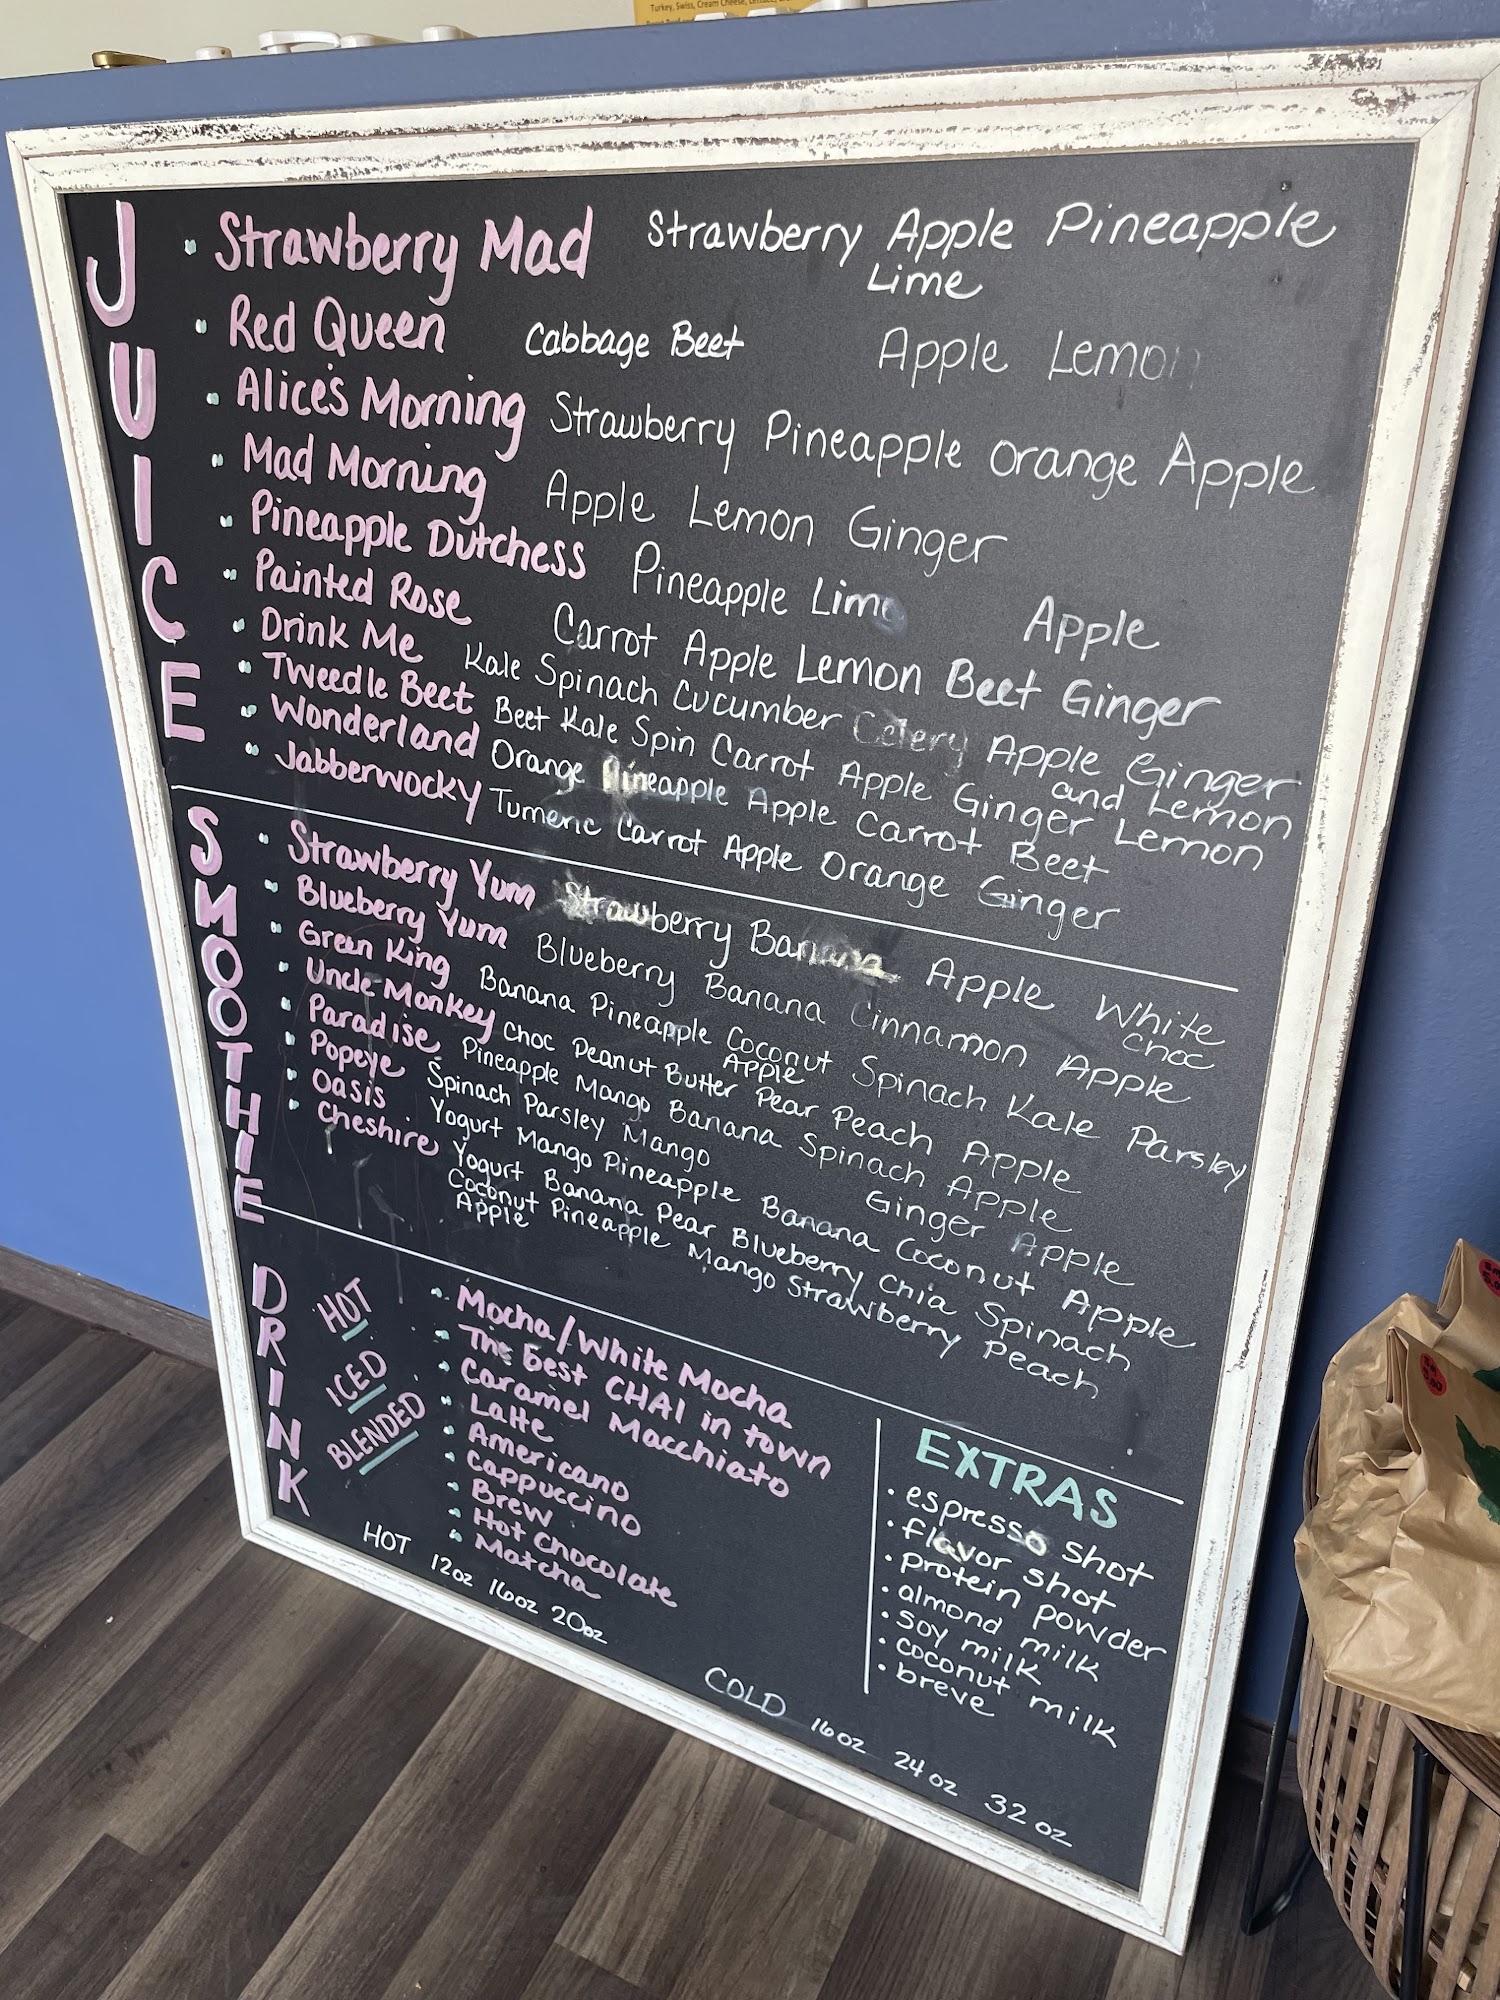 Turkey, Swiss, Cream Cheese, Lettuce,
JUICE
Strawberry Mad Strawberry Apple Pineapple
Lime
Red Queen Cabbage Beet Apple Lemon
Alice's Morning Strawberry Pineapple Orange Apple
Mad Morning Apple Lemon Ginger
Pineapple Dutchess Pineapple Lime Apple
Painted Rose Carrot Apple Lemon Beet Ginger
Drink Me Kale Spinach Cucumber Celery Apple Ginger
and Lemon
Tweedle Beet Beet Kale Spin Carrot Apple Ginger Lemon
Wonderland Orange Pineapple Apple Carrot Beet
Jabberwocky Tumeric Carrot Apple Orange Ginger
SMOOTHIE
Strawberry Yum Strawberry Banana Apple White
Choc
Blueberry Yum Blueberry Banana Cinnamon Apple
Green King Banana Pineapple Coconut Spinach Kale Parsley
Apple
Uncle Monkey Choc Peanut Butter Pear Peach Apple
Paradise Pineapple Mango Banana Spinach Apple
Popeye Spinach Parsley Mango Ginger Apple
Oasis Yogurt Mango Pineapple Banana Coconut Apple
Cheshire Yogurt Banana Pear Blueberry Chia Spinach
Coconut Pineapple Mango Strawberry Peach
Apple
DRINK
HOT
ICED
BLENDED
Mocha/White Mocha
The Best CHAI in town
Caramel Macchiato
Latte
Americano
Cappuccino
Brew
Hot Chocolate
Matcha
HOT 12oz 16oz 20oz
EXTRAS
espresso shot
flavor shot
protein powder
almond milk
soy milk
coconut milk
breve
COLD 16oz 24oz 32oz